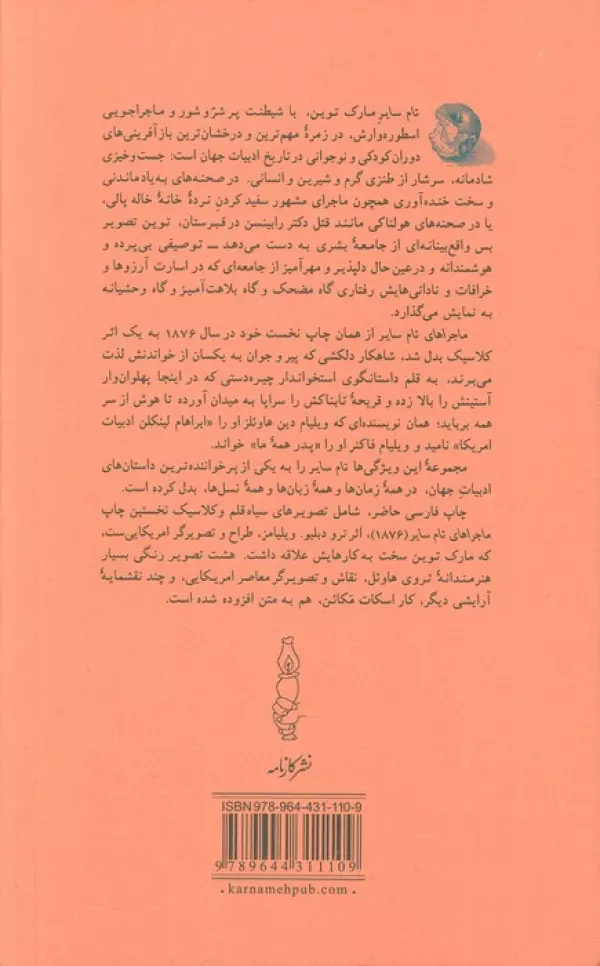 تام سایر مارک تـویـن، با شیطنت پر شرّ و شور و ماجراجویی
اسطوره‌وارش، در زمرهٔ مهم‌ترین و درخشان‌ترین بازآفرینی‌های
دوران کودکی و نوجوانی در تاریخ ادبیات جهان است: جست‌وخیزی
شادمانه، سرشار از طنزی گرم و شیرین و انسانی. در صحنه‌های به‌یادماندنی
و سخت خنده‌آوری همچون ماجرای مشهور سفید کردنِ نردهٔ خانهٔ خاله پالی،
یا در صحنه‌های هولناکی مانند قتل دکتر رابینسن در قبرستان، توین تصویر
بس واقع‌بینانه‌ای از جامعهٔ بشری به دست می‌دهد ــ توصیفی بی‌پرده و
هوشمندانه و در عین حال دلپذیر و مهرآمیز از جامعه‌ای که در اسارت آرزوها و
خرافات و نادانی‌هایش رفتاری گاه مضحک و گاه بلاهت‌آمیز و گاه وحشیانه
به نمایش می‌گذارد.
ماجراهای تام سایر از همان چاپ نخست خود در سال ۱۸۷۶ به یک اثر
کلاسیک بدل شد، شاهکار دلکشی که پیر و جوان به یکسان از خواندنش لذت
می‌برند، به قلم داستانگوی استخواندار چیره‌دستی که در اینجا پهلوان‌وار
آستینش را بالا زده و قریحهٔ تابناکش را سراپا به میدان آورده تا هوش از سر
همه برباید؛ همان نویسنده‌ای که ویلیام دین هاوئلز او را «ابراهام لینکلن ادبیات
امریکا» نامید و ویلیام فاکنر او را «پدر همهٔ ما» خواند.
مجموعهٔ این ویژگی‌ها تام سایر را به یکی از پرخواننده‌ترین داستان‌های
ادبیاتِ جهان، در همهٔ زمان‌ها و همهٔ زبان‌ها و همهٔ نسل‌ها، بدل کرده است.
چاپ فارسی حاضر، شامل تصویرهای سیاه‌قلم و کلاسیک نخستین چاپ
ماجراهای تام سایر (۱۸۷۶)، اثر ترو دبلیو. ویلیامز، طراح و تصویرگر امریکایی‌ست،
که مارک توین سخت به کارهایش علاقه داشت. هشت تصویر رنگی بسیار
هنرمندانهٔ تروی هاوئل، نقاش و تصویرگر معاصر امریکایی، و چند نقشمایهٔ
آرایشی دیگر، کار اسکات مَکائن، هم به متن افزوده شده است.
نشر کارنامه
ISBN 978-964-431-110-9
9 789644 311109
• karnamehpub.com •